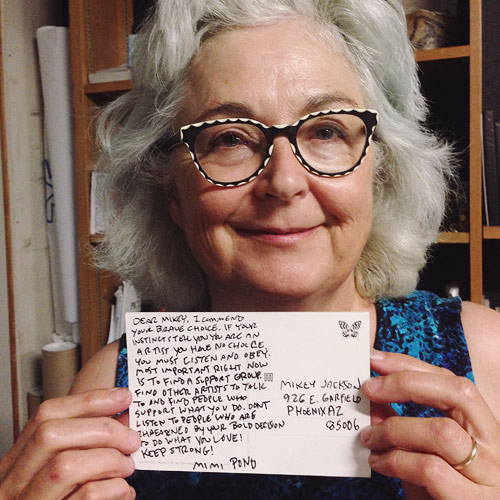 DEAR MIKEY, I COMMEND
YOUR BRAVE CHOICE. IF YOUR
INSTINCTS TELL YOU YOU ARE AN
ARTIST YOU HAVE NO CHOICE.
YOU MUST LISTEN AND OBEY.
MOST IMPORTANT RIGHT NOW
IS TO FIND A SUPPORT GROUP.
FIND OTHER ARTISTS TO TALK
TO AND FIND PEOPLE WHO
SUPPORT WHAT YOU DO. DON'T
LISTEN TO PEOPLE WHO ARE
THREATENED BY YOUR BOLD DECISION
TO DO WHAT YOU LOVE!
KEEP STRONG!
MIMI POND
MIKEY JACKSON
926 E. GARFIELD
PHOENIX AZ
85006